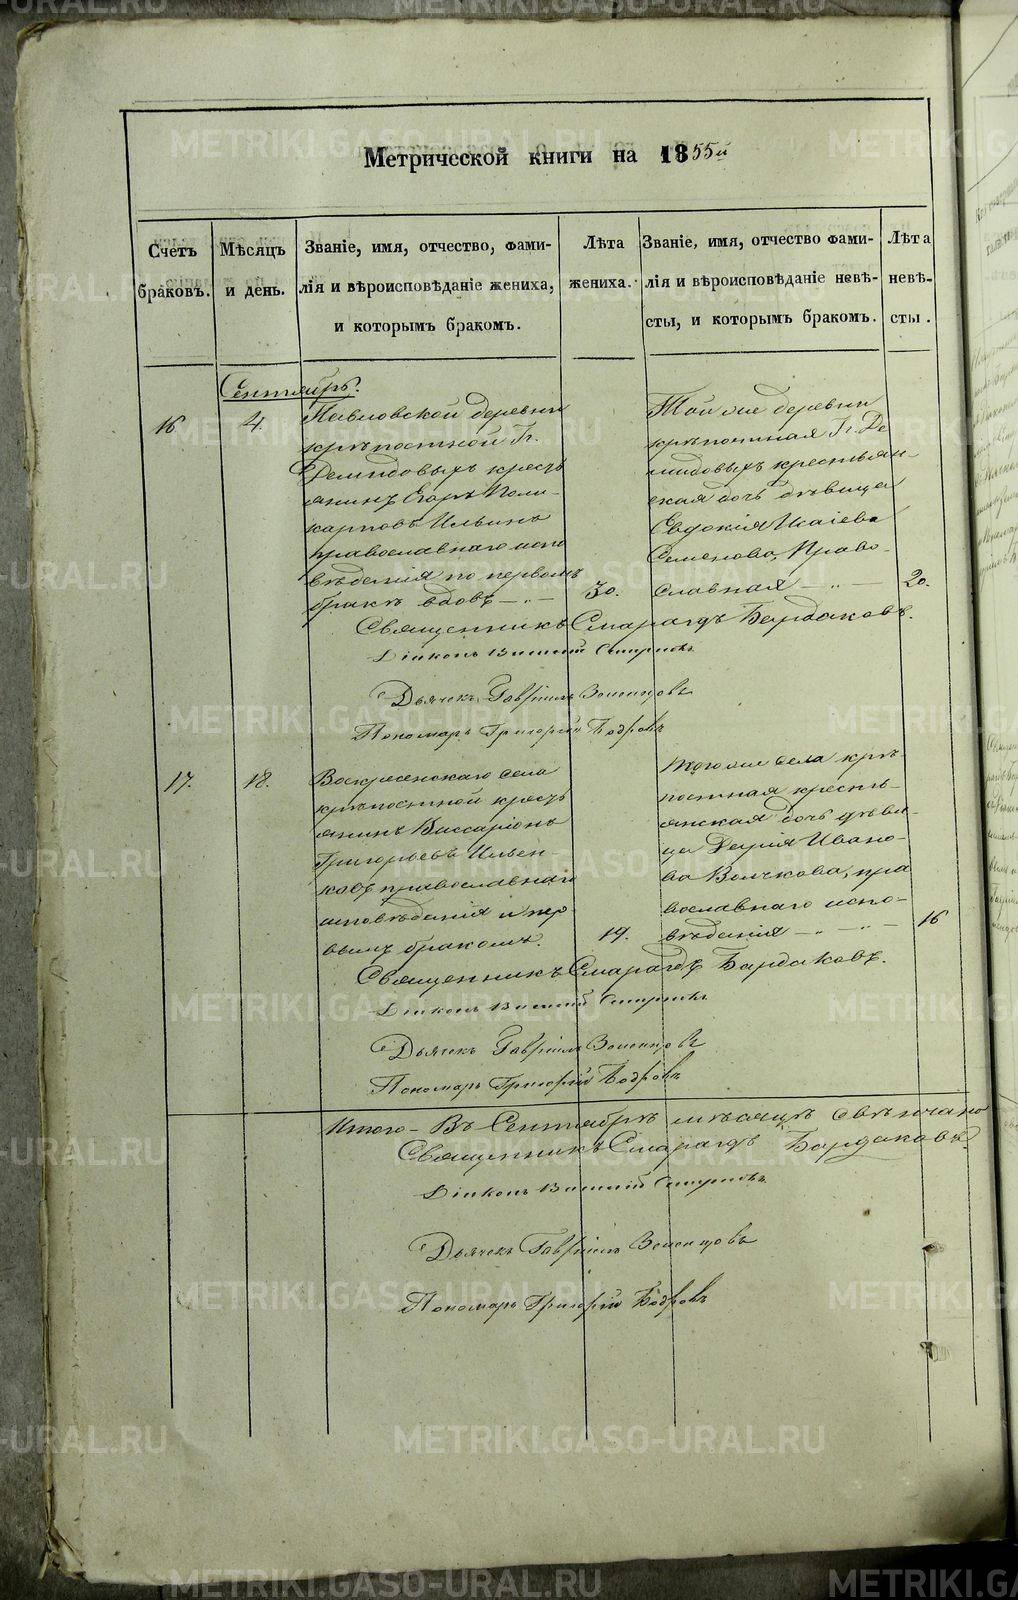 Метрической книги на 1855й
Счетъ браковъ.
Мѣсяцъ и день.
Званіе, имя, отчество, фами-
лія и вѣроисповѣданіе жениха,
и которымъ бракомъ.
Лѣта жениха.
Званіе, имя, отчество фами-
лія и вѣроисповѣданіе невѣ-
сты, и которымъ бракомъ.
Лѣта невѣ-
сты.
Сентябрь.
16
4.
Павловской деревни
крѣпостной Гг.
Демидовыхъ кресть
янинъ Егоръ Поли-
карповъ Ильинъ
православнаго испо
вѣданія по первомъ
бракѣ вдовъ — „ —
30.
Той же деревни
крѣпостная Гг. Де
мидовыхъ крестьян-
ская дочь дѣвица
Евдокія Исаіева
Семенова, Право-
славная — „ —
20.
Священникъ Смарагдъ Бардаковъ.
Діаконъ Смирновъ
Дьячекъ Гавріилъ Земенцовъ
Пономарь Григорій Бодровъ
17.
18.
Воскресенскаго села
крѣпостной кресть
янинъ Виссаріонъ
Григорьевъ Ильен-
ковъ православнаго
исповѣданія и пер
вымъ бракомъ.
19.
Того же села крѣ-
постная кресть-
янская дочь дѣви-
ца Дарія Ивано-
ва Волчкова, пра
вославнаго испо-
вѣданія — „ — „ —
16
Священникъ Смарагдъ Бардаковъ.
Діаконъ Смирновъ
Дьячекъ Гавріилъ Земенцовъ
Пономарь Григорій Бодровъ
Итого — Въ Сентябрѣ мѣсяцѣ свѣнчано
Священникъ Смарагдъ Бардаковъ
Діаконъ Смирновъ
Дьячекъ Гавріилъ Земенцовъ
Пономарь Григорій Бодровъ
METRIKI.GASO-URAL.RU